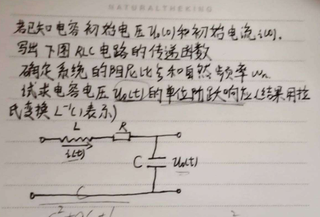 NATURALTHEKING
若已知电容初始电压U₀(0)和初始电流i(0).
写出下图RLC电路的传递函数
确定系统的阻尼比ξ和自然频率ωn
试求电容电压U₀(t)的单位阶跃响应(结果用拉
氏变换L⁻¹()表示)
L R
i(t)
C U₀(t)